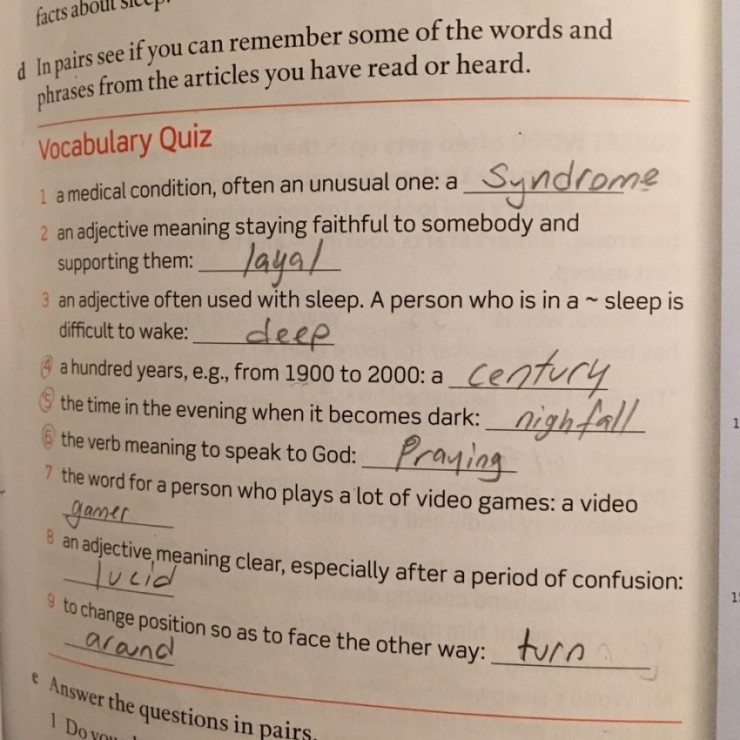 facts about sleep.
d In pairs see if you can remember some of the words and
phrases from the articles you have read or heard.
Vocabulary Quiz
1 a medical condition, often an unusual one: a Syndrome
2 an adjective meaning staying faithful to somebody and
supporting them: layal
3 an adjective often used with sleep. A person who is in a ~ sleep is
difficult to wake: deep
4 a hundred years, e.g., from 1900 to 2000: a century
5 the time in the evening when it becomes dark: nighfall
6 the verb meaning to speak to God: Praying
7 the word for a person who plays a lot of video games: a video
gamer
8 an adjective meaning clear, especially after a period of confusion:
lucid
9 to change position so as to face the other way: turn
arand
e Answer the questions in pairs.
1 Do you
1
15